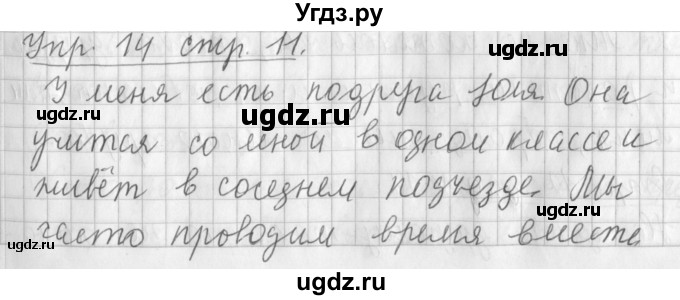 Угдз.ру
Упр. 14 стр. 11.
ugdz.ru
ugdz.ru
ugdz.ru
У меня есть подруга Юля. Она
ugdz.ru
учится со мной в одном классе и
живёт в соседнем подъезде. Мы
ugdz.ru
ugdz.ru
часто проводим время вместе
ugdz.ru